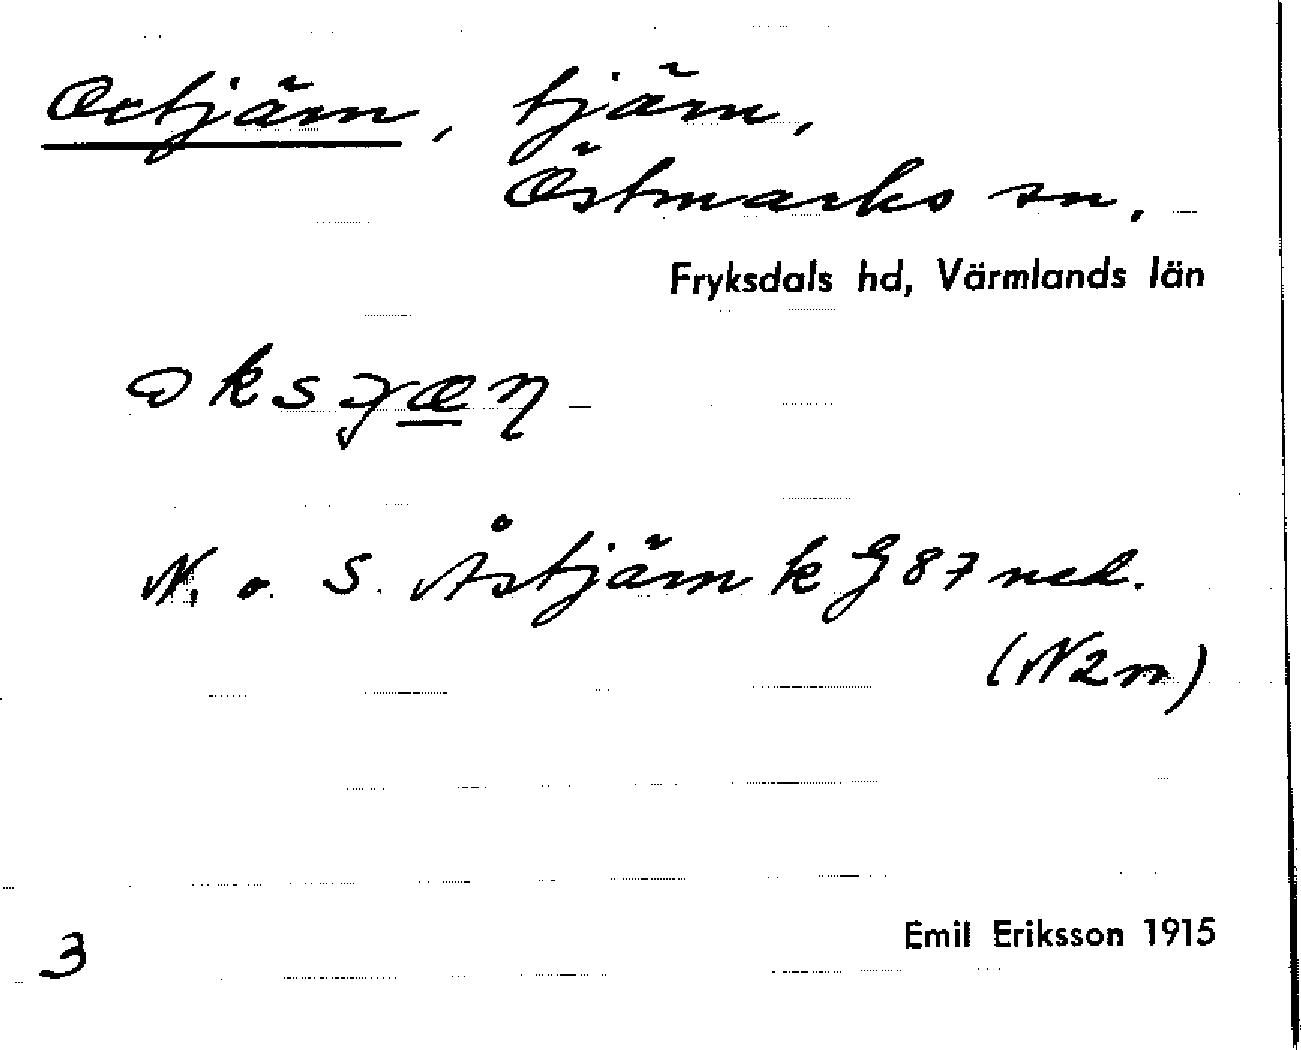 Oxtjärn, tjärn,
Östmarks sn.
Fryksdals hd, Värmlands län
N. o. S. Åstjärn k G 87 ned.
(N2m)
Emil Eriksson 1915
3